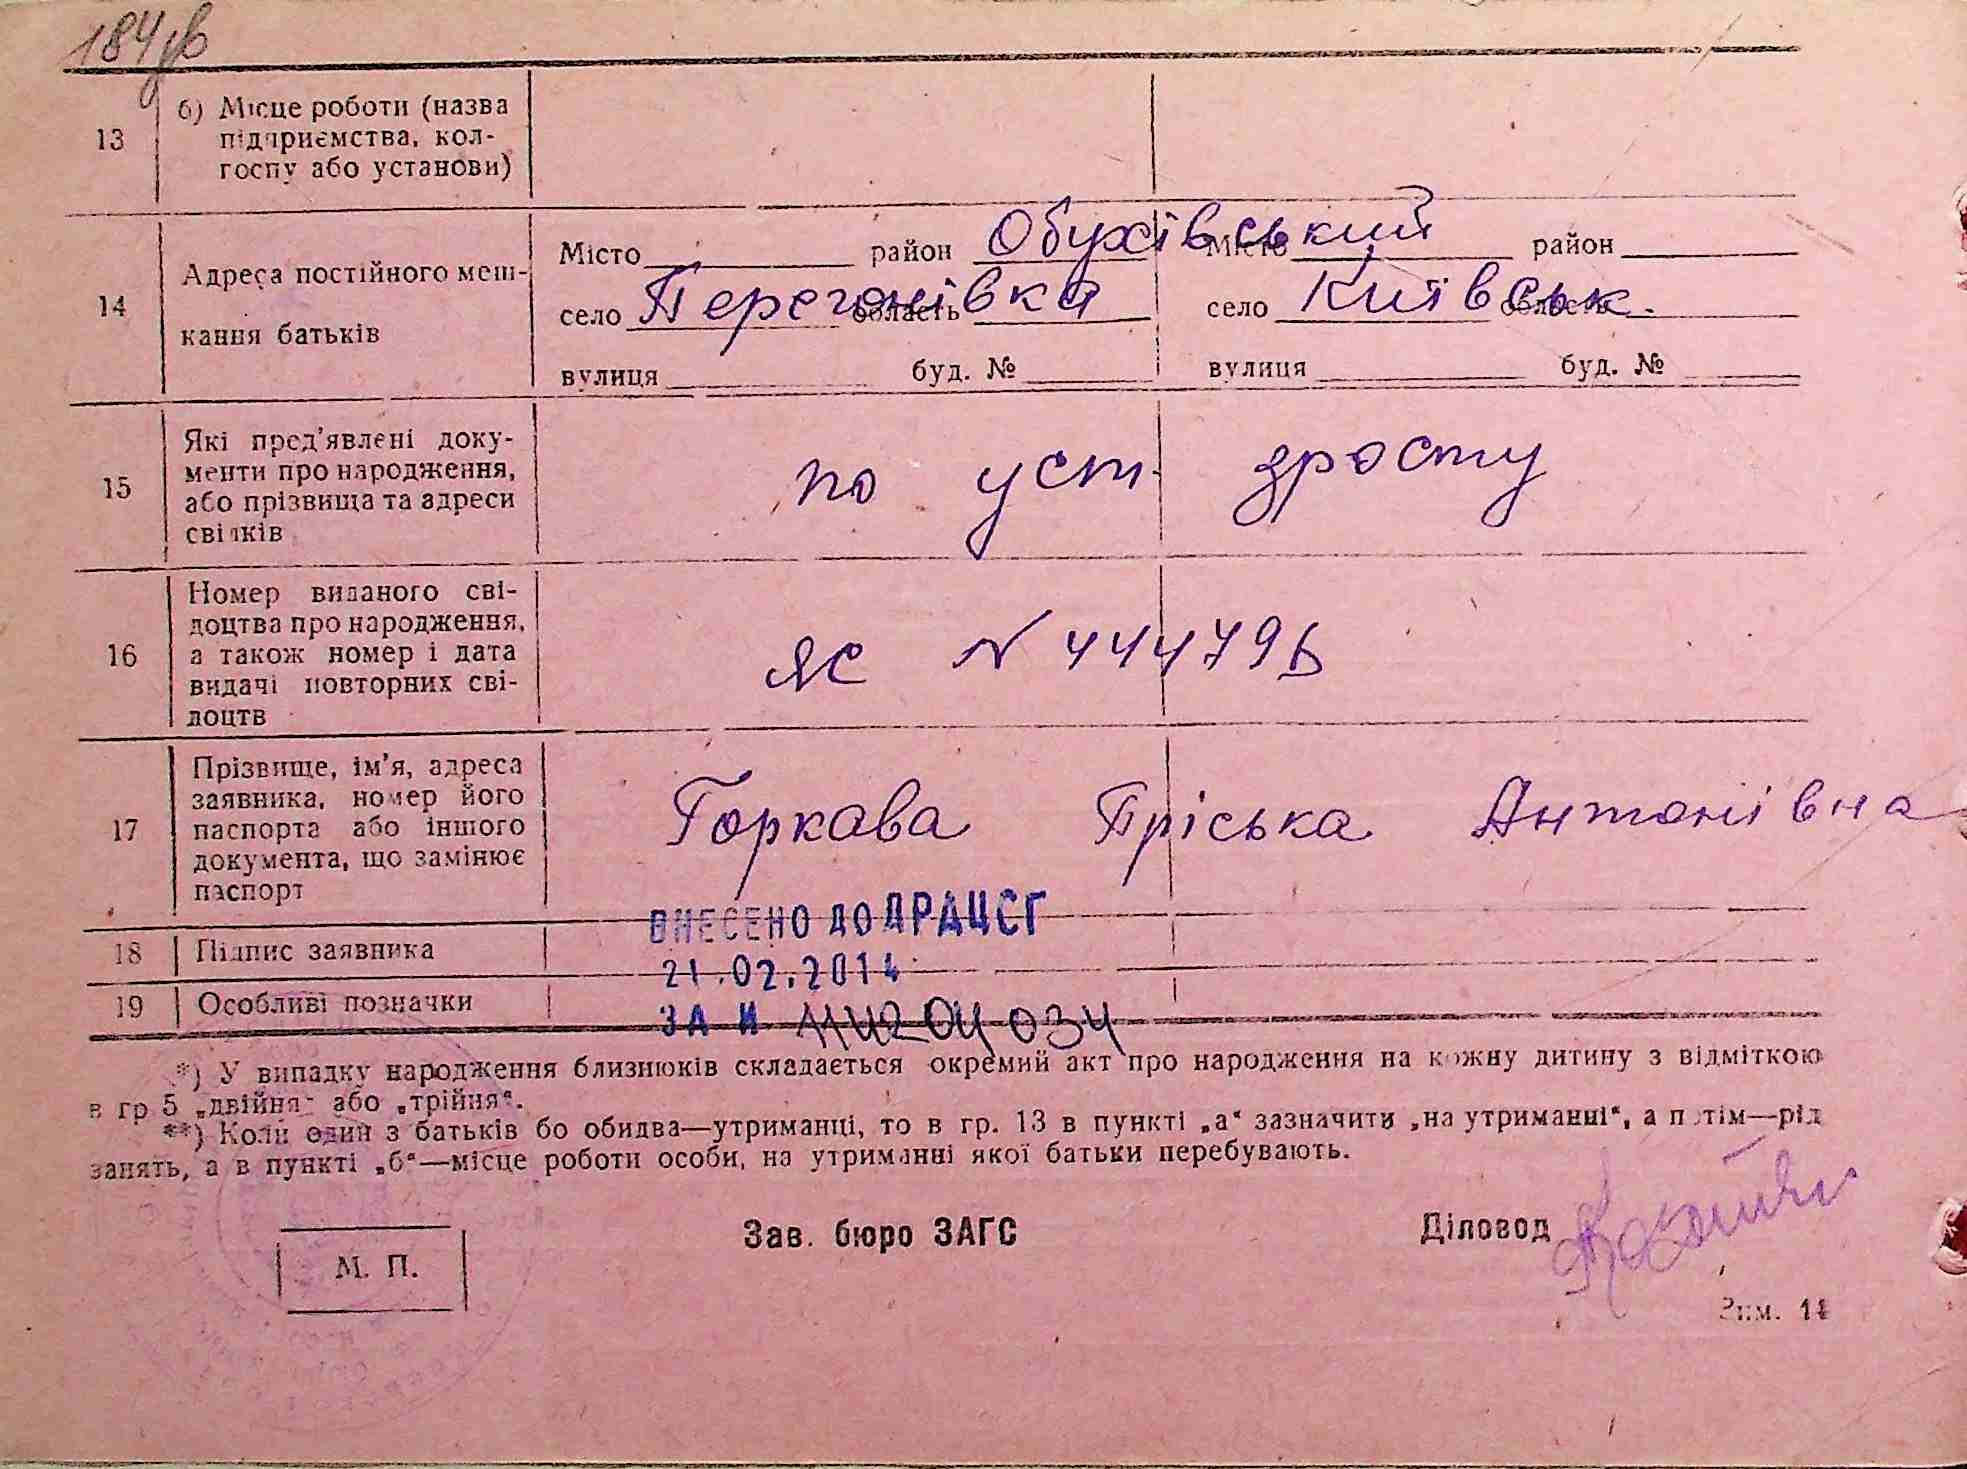 184зв
13
б) Місце роботи (назва
підприємства, кол-
госпу або установи)
14
Адреса постійного меш-
кання батьків
Місто район Обухівський Місто район
село Перегонівка область село Київськ. область
вулиця буд. № вулиця буд. №
15
Які пред'явлені доку-
менти про народження,
або прізвища та адреси
свідків
по уст. зросту
16
Номер виданого сві-
доцтва про народження,
а також номер і дата
видачі повторних сві-
доцтв
ЯС N 444796
17
Прізвище, ім'я, адреса
заявника, номер його
паспорта або іншого
документа, що замінює
паспорт
Горкава Пріська Антонівна
18 Підпис заявника
ВНЕСЕНО ДО ДРАЦСГ
21.02.2014
19 Особливі позначки
ЗА №
*) У випадку народження близнюків складається окремий акт про народження на кожну дитину з відміткою
в гр 5 „двійня" або „трійня".
**) Коли один з батьків бо обидва—утриманці, то в гр. 13 в пункті „а" зазначити „на утриманні", а потім—рід
занять, а в пункті „б"—місце роботи особи, на утриманні якої батьки перебувають.
Зав. бюро ЗАГС Діловод
М. П.